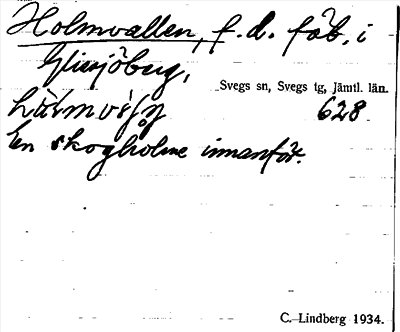 Holmvallen, f. d. fäb. i
Glissjöberg,
Svegs sn, Svegs tg, Jämtl. län.
628
En skogholme innanför.
C. Lindberg 1934.